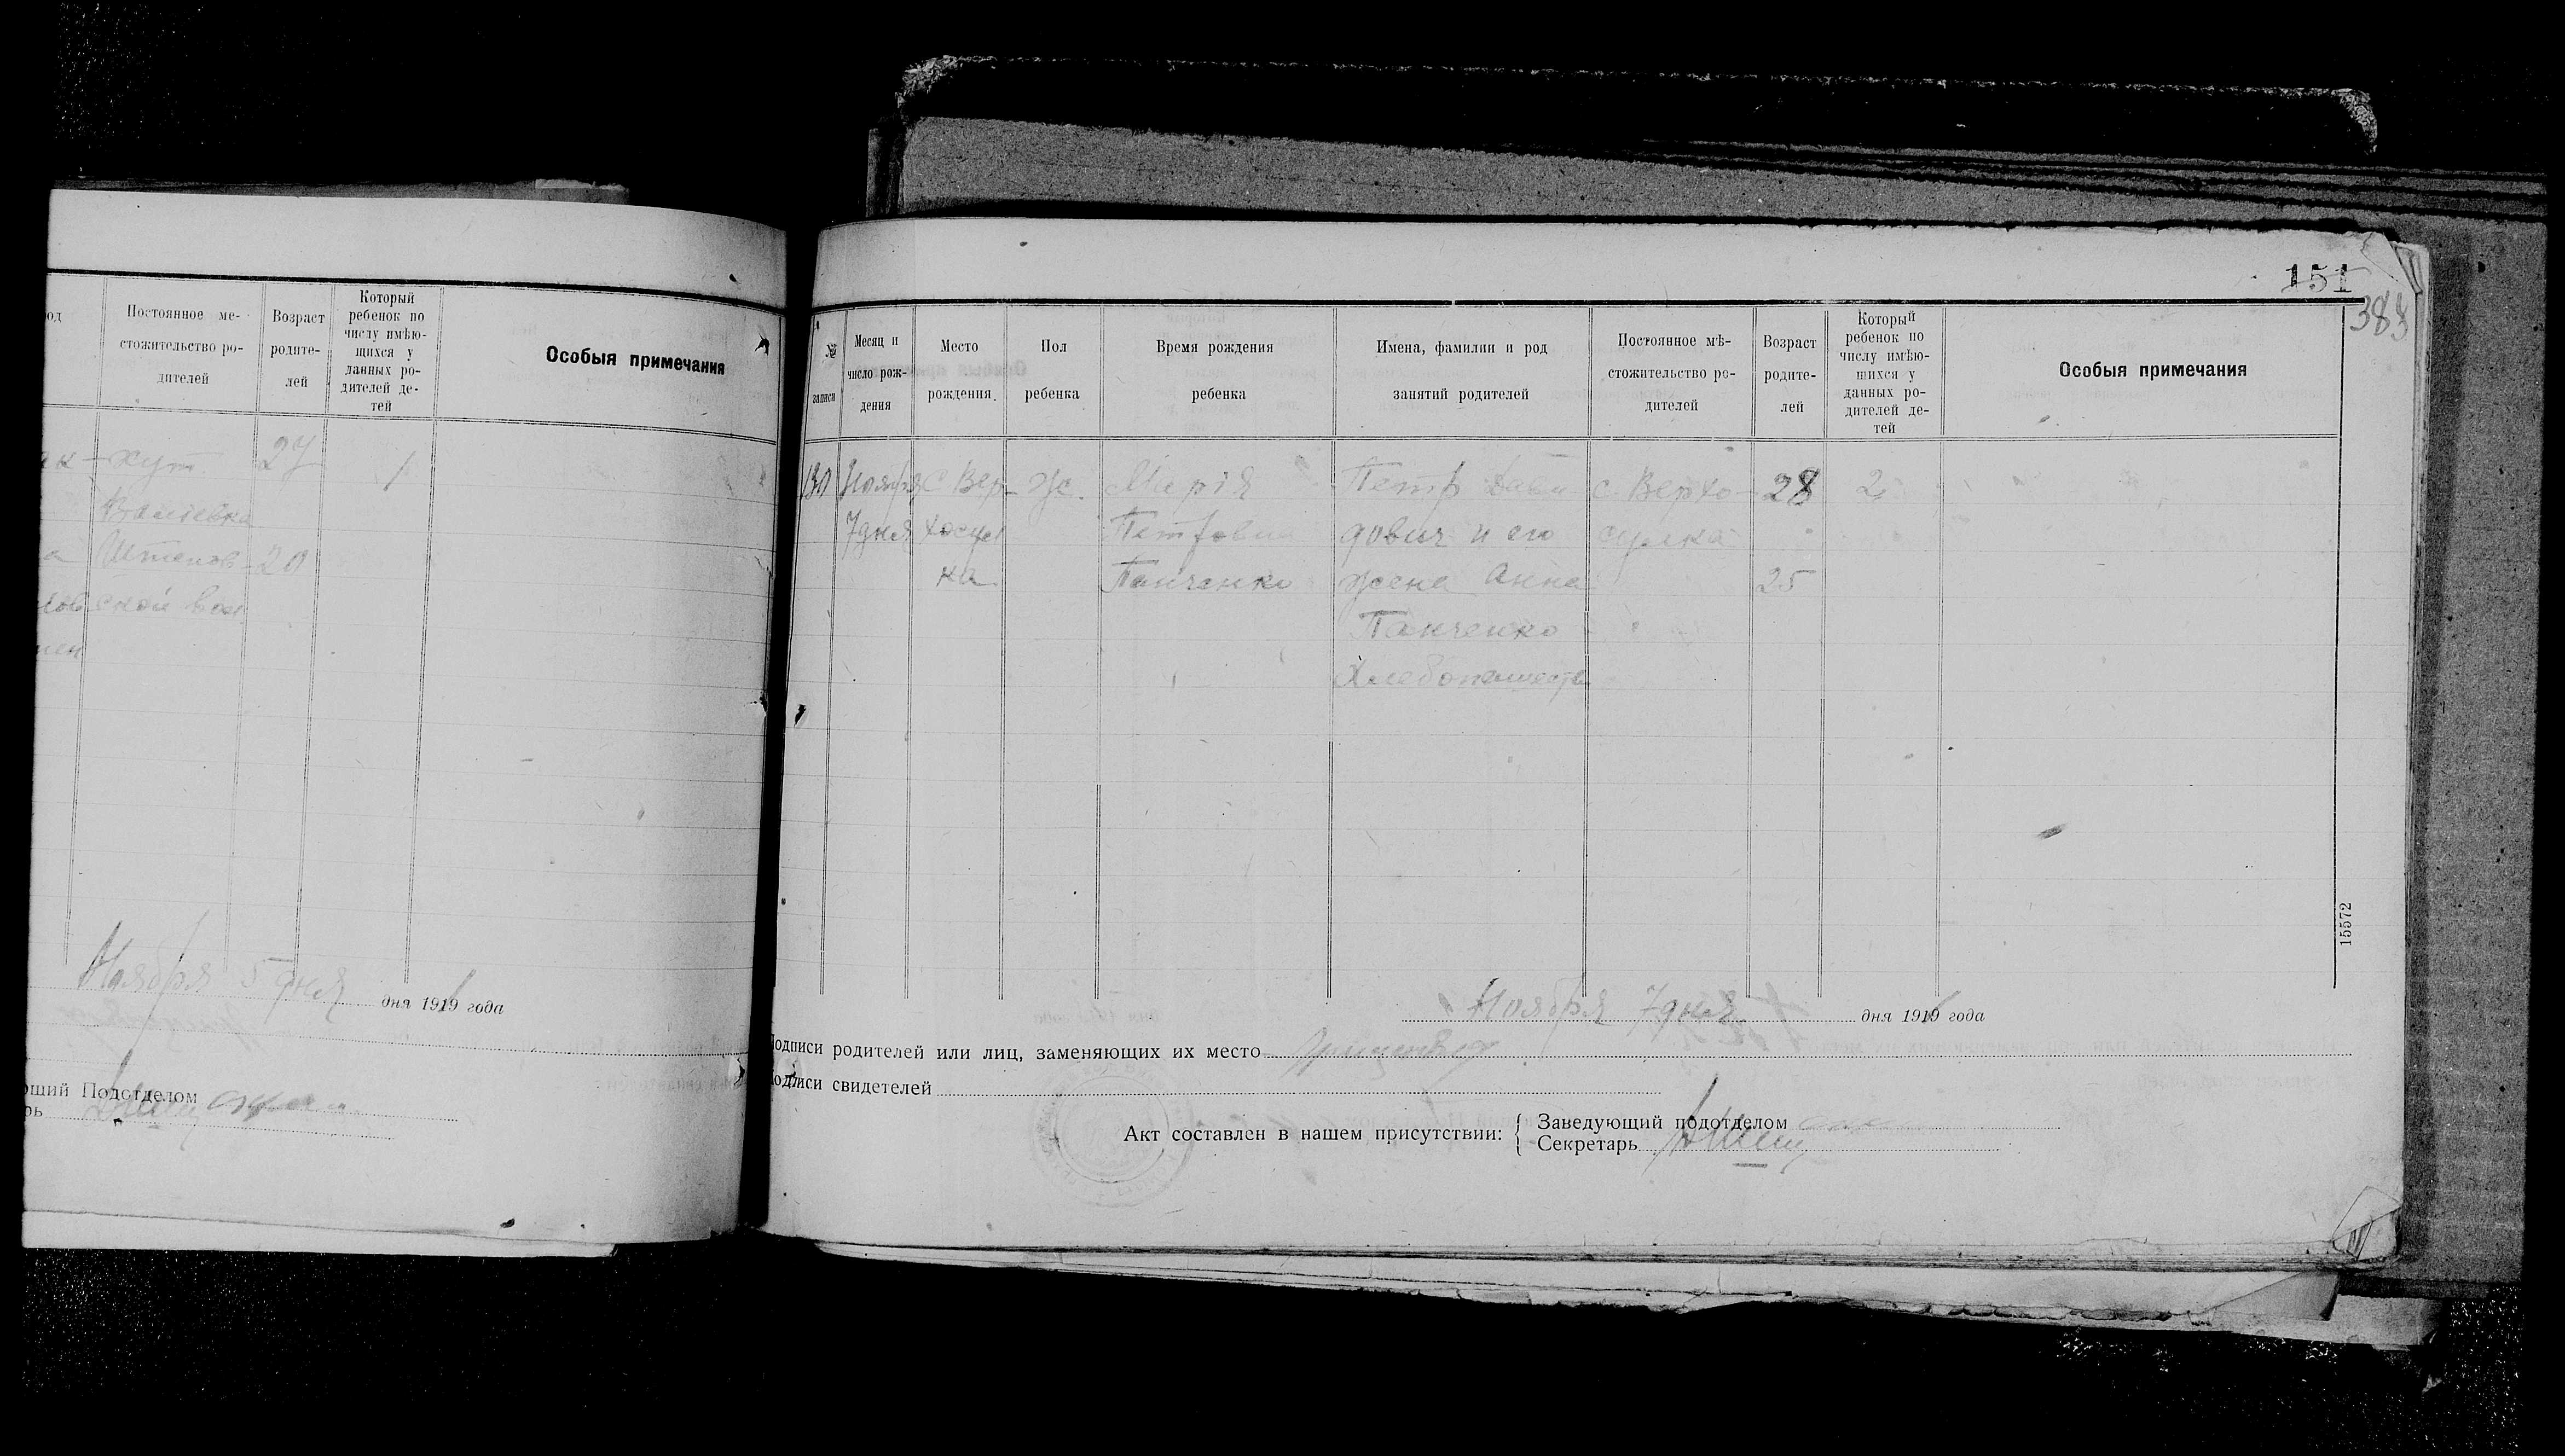 Постоянное ме-
стожительство ро-
дителей
Возраст
родите-
лей
Который
ребенок по
числу имѣю-
щихся у
данных ро-
дителей де-
тей
Особыя примечания
хут
27
1
20
ской вол.
Ноября 5 дня дня 1919 года
Подотделом
151
383
№
записи
Месяц и
число рож-
дения
Место
рождения
Пол
ребенка
Время рождения
ребенка
Имена, фамилии и род
занятий родителей
Постоянное мѣ-
стожительство ро-
дителей
Возраст
родите-
лей
Который
ребенок по
числу имѣю-
шихся у
данных ро-
дителей де-
тей
Особыя примечания
130 Ноября с Вер- Ж. Марія Петр Дави- с. Верхо- 28 2
7 дня хосул Петровна дович и его сулка
ка Панченко жена Анна 25
Панченко
Хлебопашеств
15572
Ноября 7 дня дня 1919 года
Подписи родителей или лиц, заменяющих их место
Подписи свидетелей
Акт составлен в нашем присутствии:
Заведующий подотделом
Секретарь